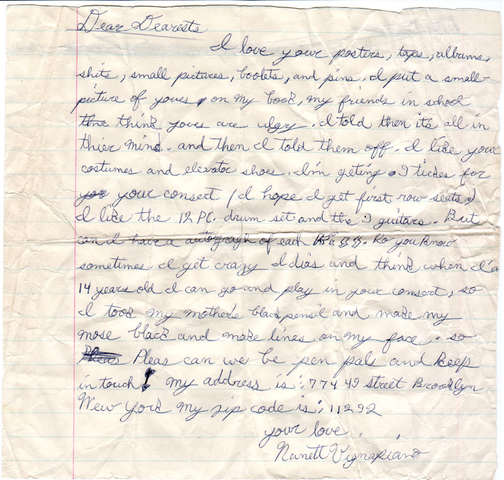 Dear Dearests
I love your posters, tops, albums,
shits, small pictures, boolets, and pins. I put a small
picture of yours on my book, my friends in school
think yours are ulgry. I told then it's all in
thier mind. and then I told them off. I like your
costumes and elevator shoes. I'm geting 2 tickes for
your consert / I hope I get first row seats.
I like the 12 PC. drum sit and the 2 guitars. But
can I have a autograph of each Do you know
sometimes I get crazy I dias and think when I'm
14 years old I can go and play in your consert, so
I took my mother's black pensil and made my
nose black and made lines on my face. so
Pleas can we be pen pals and keep
in touch! my address is: 774 49 street Brooklyn
New York my zip code is: 11292
your love,
Nanett Vignapiano